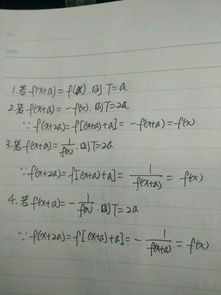 1.若 f(x+a)=f(x).则T=a
2.若 f(x+a)=-f(x).则T=2a
∵f(x+2a)=f[(x+a)+a]=-f(x+a)=f(x)
3.若f(x+a)=1/f(x).则T=2a
∵f(x+2a)=f[(x+a)+a]=1/f(x+a)=f(x)
4.若f(x+a)=-1/f(x).则T=2a
∵f(x+2a)=f[(x+a)+a]=-1/f(x+a)=f(x)